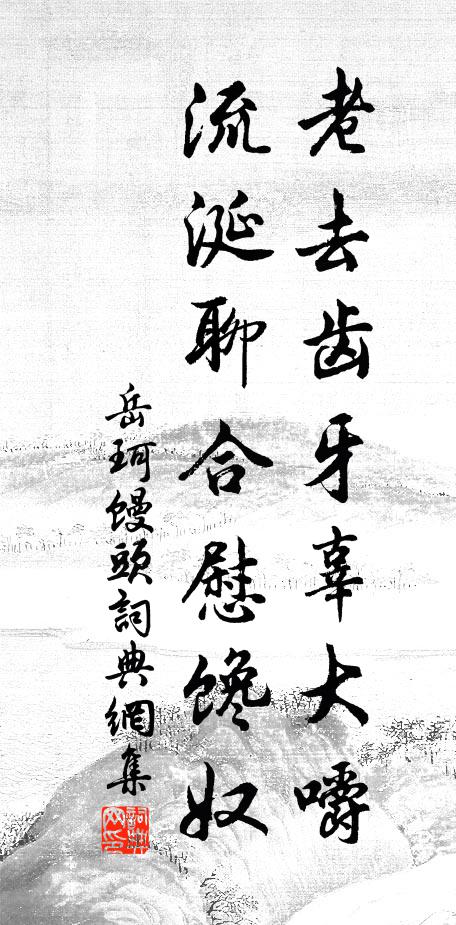 老去齿牙辜大嚼
流涎聊合慰馋奴
岳珂馒頭詞典網集